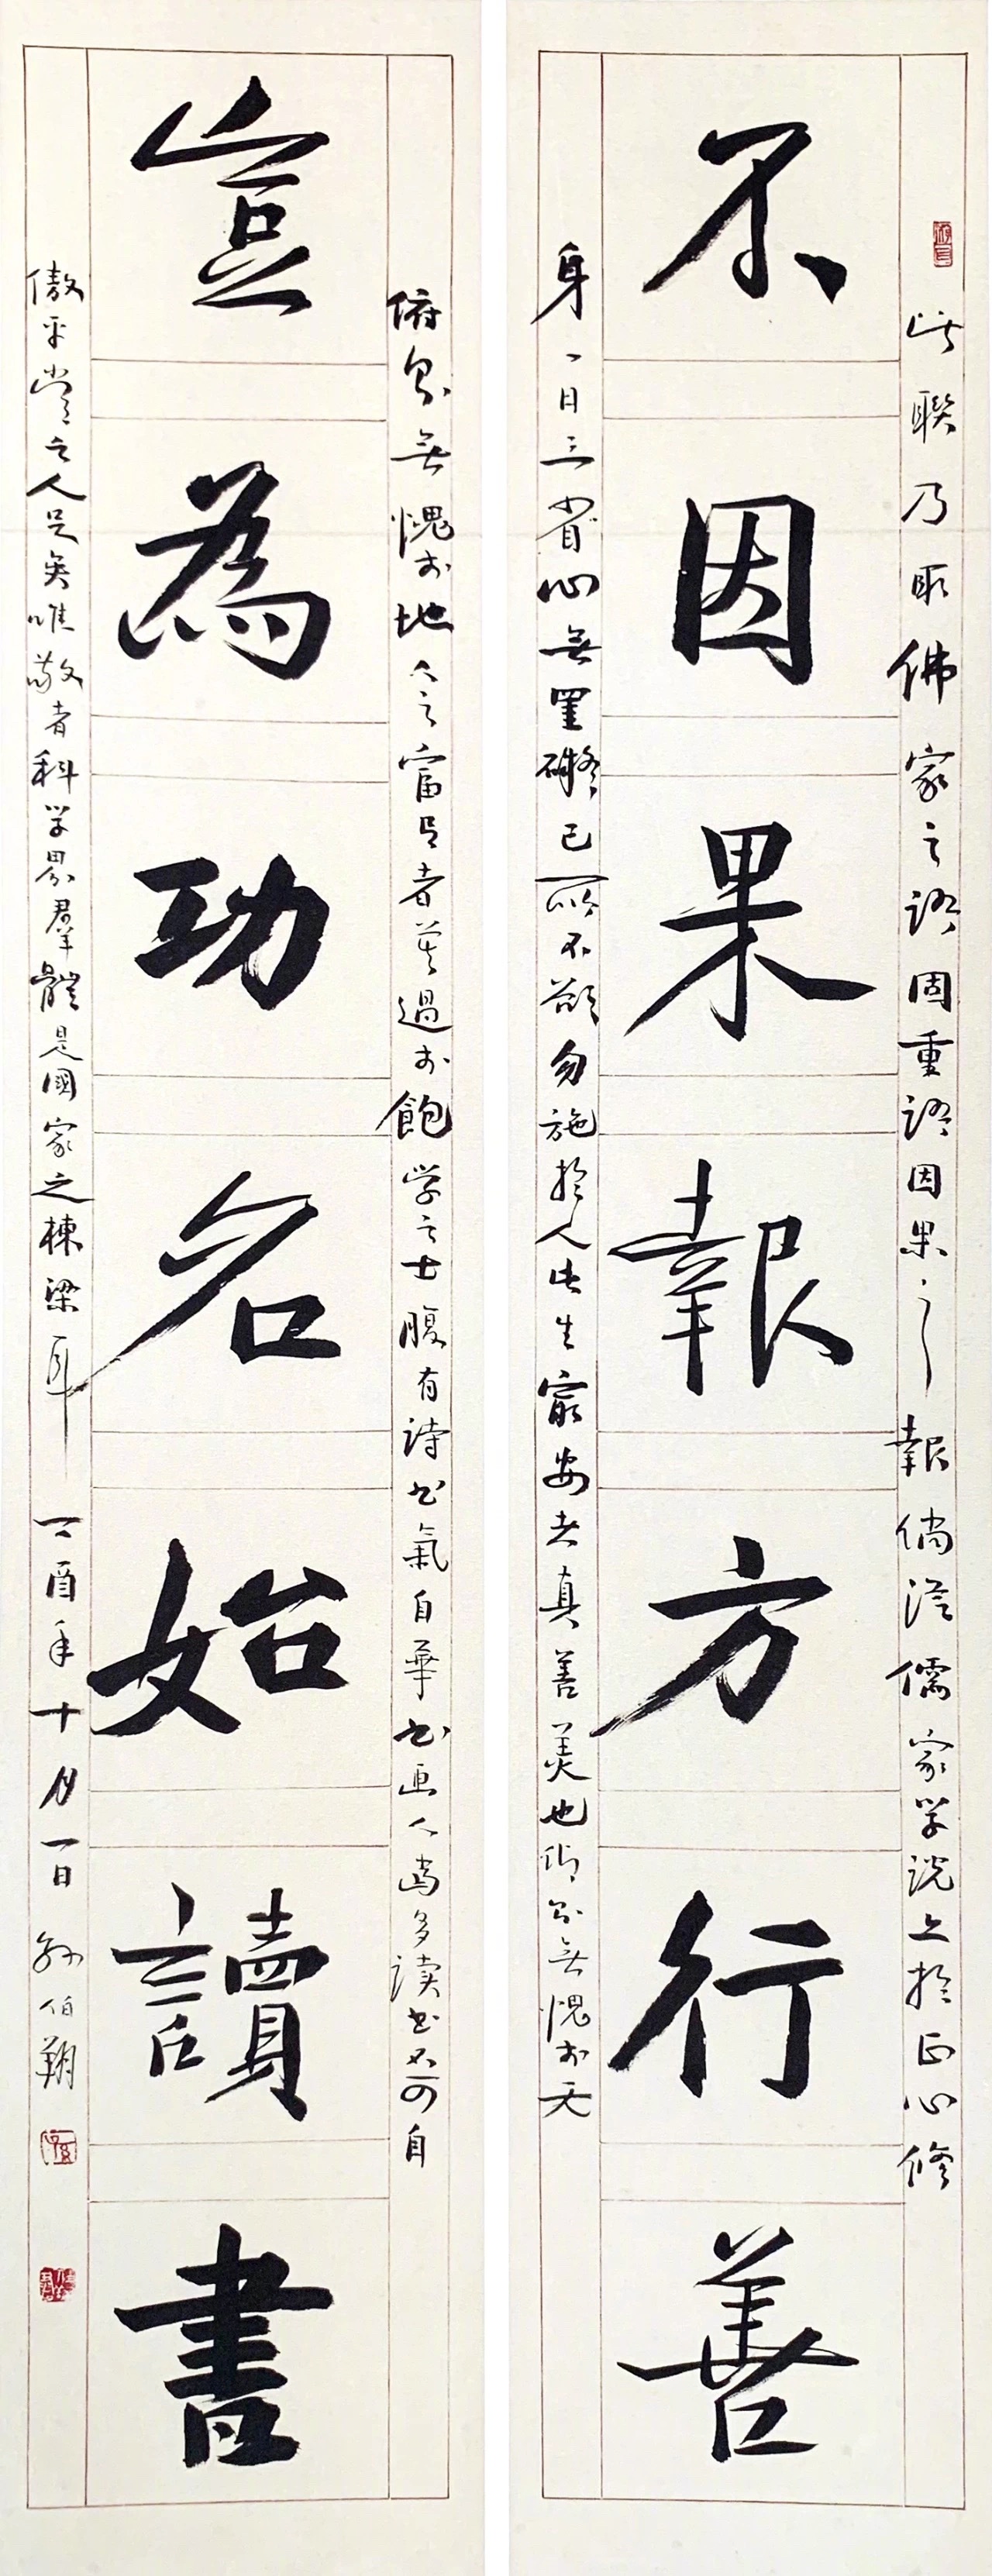 此聯乃取佛家之語固重語因果之報倘從儒家学説上於正心修
不因果報方行善
身一日三省心無罣礙己所不欲勿施於人此生㝡要者真善美也仰則無愧於天
俯則無愧於地今之富足者莫過於飽学之士腹有詩书氣自華书画人当多读书不可自
豈為功名始讀書
傲平常之人足矣唯敬者科学界羣體是國家之棟梁耳丁酉年十月一日孫伯翔